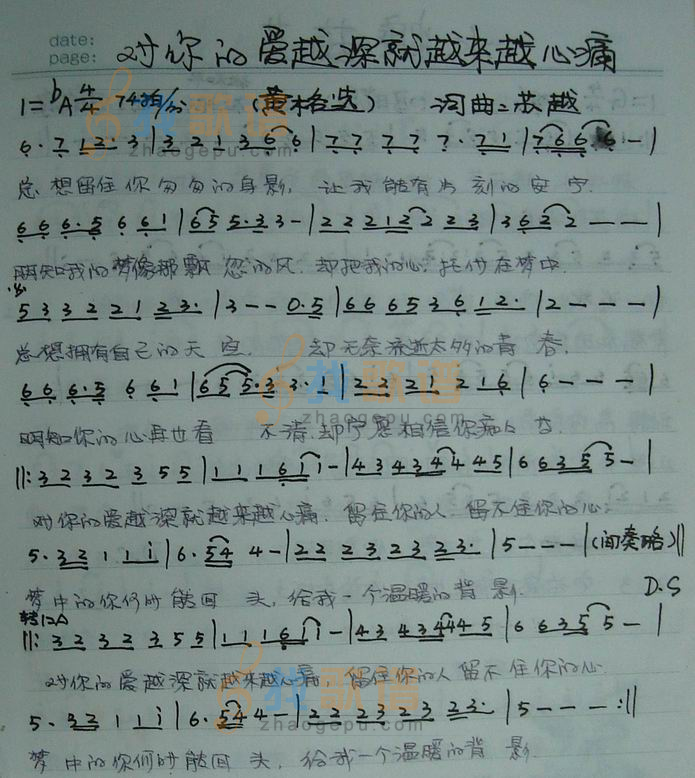 date:
page:
对你的爱越深就越来越心痛
1=bA 4/4 74拍/分 (黄格选) 词曲:苏越
6. 7 12. 3 3 2 3 2 1 3 6 6 | 7 7 7 7 7. 7 1 | 7 6 6 6 - |
总想留住你匆匆的身影, 让我能有片刻的安宁.
6 6 6. 5 6 6 1 | 6 5 5. 3 3 - | 2 2 2 1 2 2 2 3 | 3 6 2 2 - - - |
明知我的梦像那飘忽的风, 却把我的心托付在梦中.
5 3 3 2 2 1 2 3. | 3 - - 0. 5 | 6 6 6 5 3 6 1 2. | 2 - - - |
总想拥有自己的天空. 却无奈流逝太多的青春.
6 6 6. 5 6 6 1 | 6 5 5. 3 3. 1 | 2 2 2 1 2 1 6 | 6 - - - |
明知你的心再也看不清 却宁愿相信你痴人梦.
||: 3 2 3 2 3 5 5 | 1 1 1 6 1 1 - | 4 3 4 3 4 4 4 5 | 6 6 3 5 5 - |
对你的爱越深就越来越心痛. 留住你的人留不住你的心;
5. 3 2 1 1 i | 6. 5 4 4 - | 2 2 2 3 2 3 2 3. | 5 - - - | (间奏略) ||
梦中的你何时能回头, 给我一个温暖的背影. D.S
转1=A
||: 3 2 3 2 3 5 5 | 1 1 1 6 1 1 - | 4 3 4 3 4 4 4 5 | 6 6 3 5 5 - |
对你的爱越深就越来越心痛, 留住你的人留不住你的心
5. 3 2 1 1 i | 6. 5 4 4 - | 2 2 2 3 2 3 2 3. | 5 - - - :||
梦中的你何时能回头, 给我一个温暖的背影.
找歌谱
zhaogepu.com
找歌谱
zhaogepu.com
找歌谱
zhaogepu.com